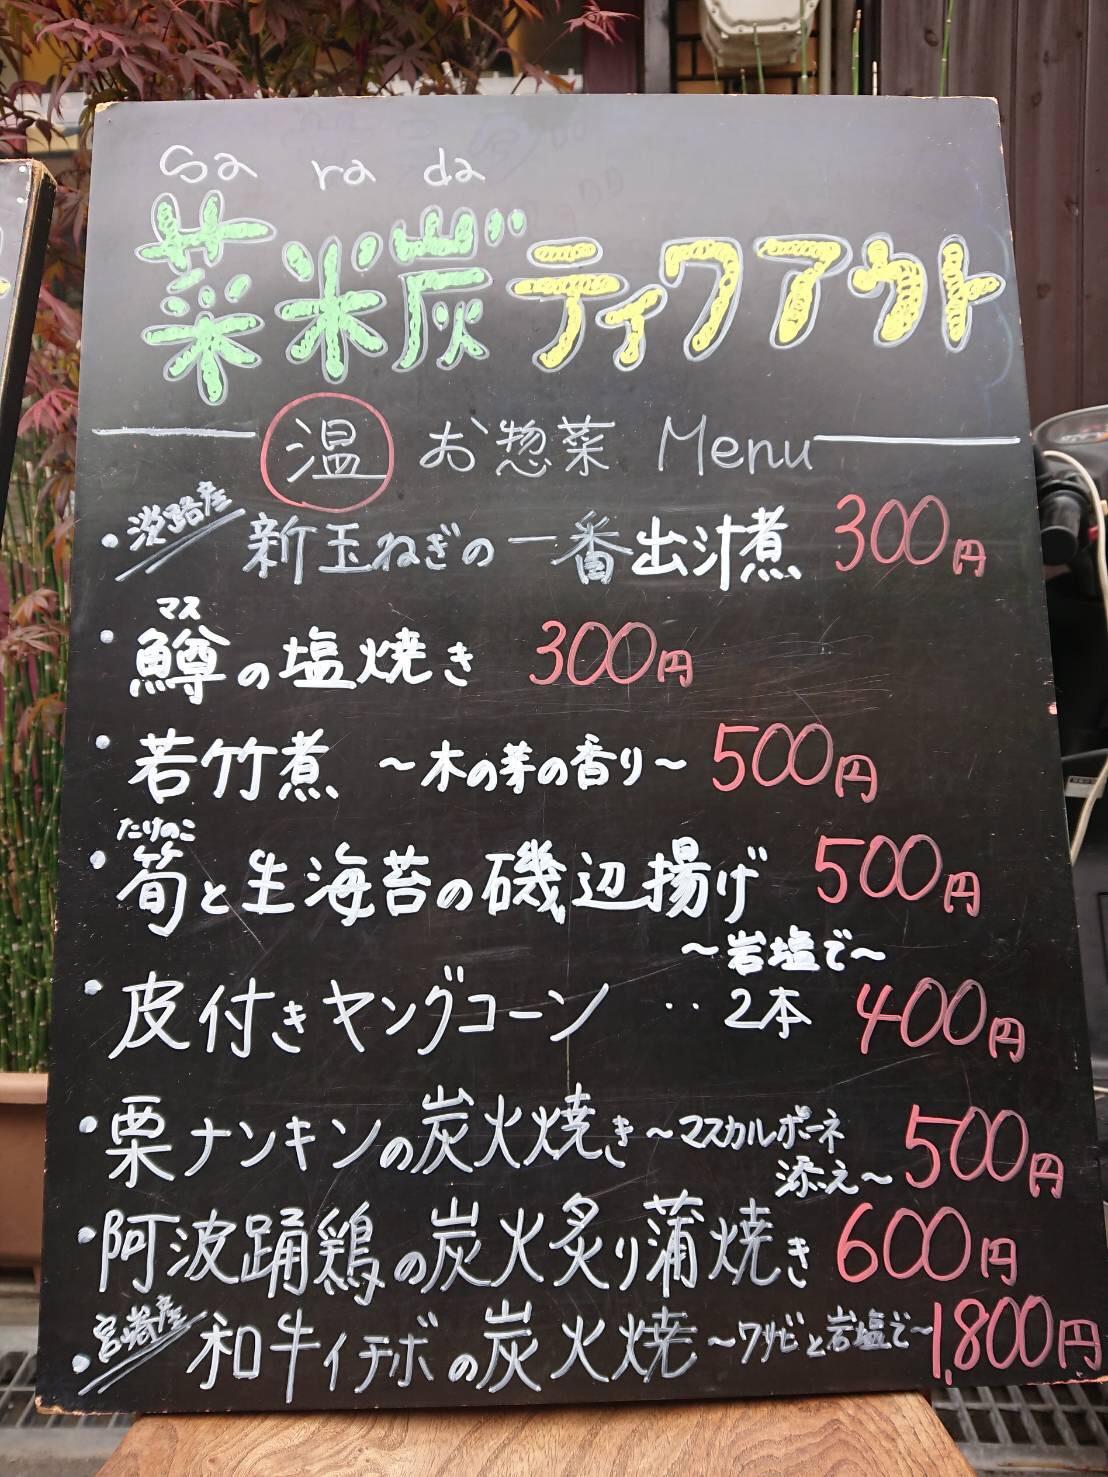 Sa ra da
菜米炭゛ティクアウト
温 お惣菜 Menu
・淡路産 新玉ねぎの一番出汁煮 300円
マス
・鱒の塩焼き 300円
・若竹煮 ～木の芽の香り～ 500円
たけのこ
・筍と生海苔の磯辺揚げ 500円
～岩塩で～
・皮付きヤングコーン ‥2本 400円
・栗ナンキンの炭火焼き～マスカルポーネ 500円
添え～
・阿波踊鶏の炭火炙り蒲焼き 600円
・宮崎産 和牛イチボの炭火焼～ワサビと岩塩で～ 1,800円